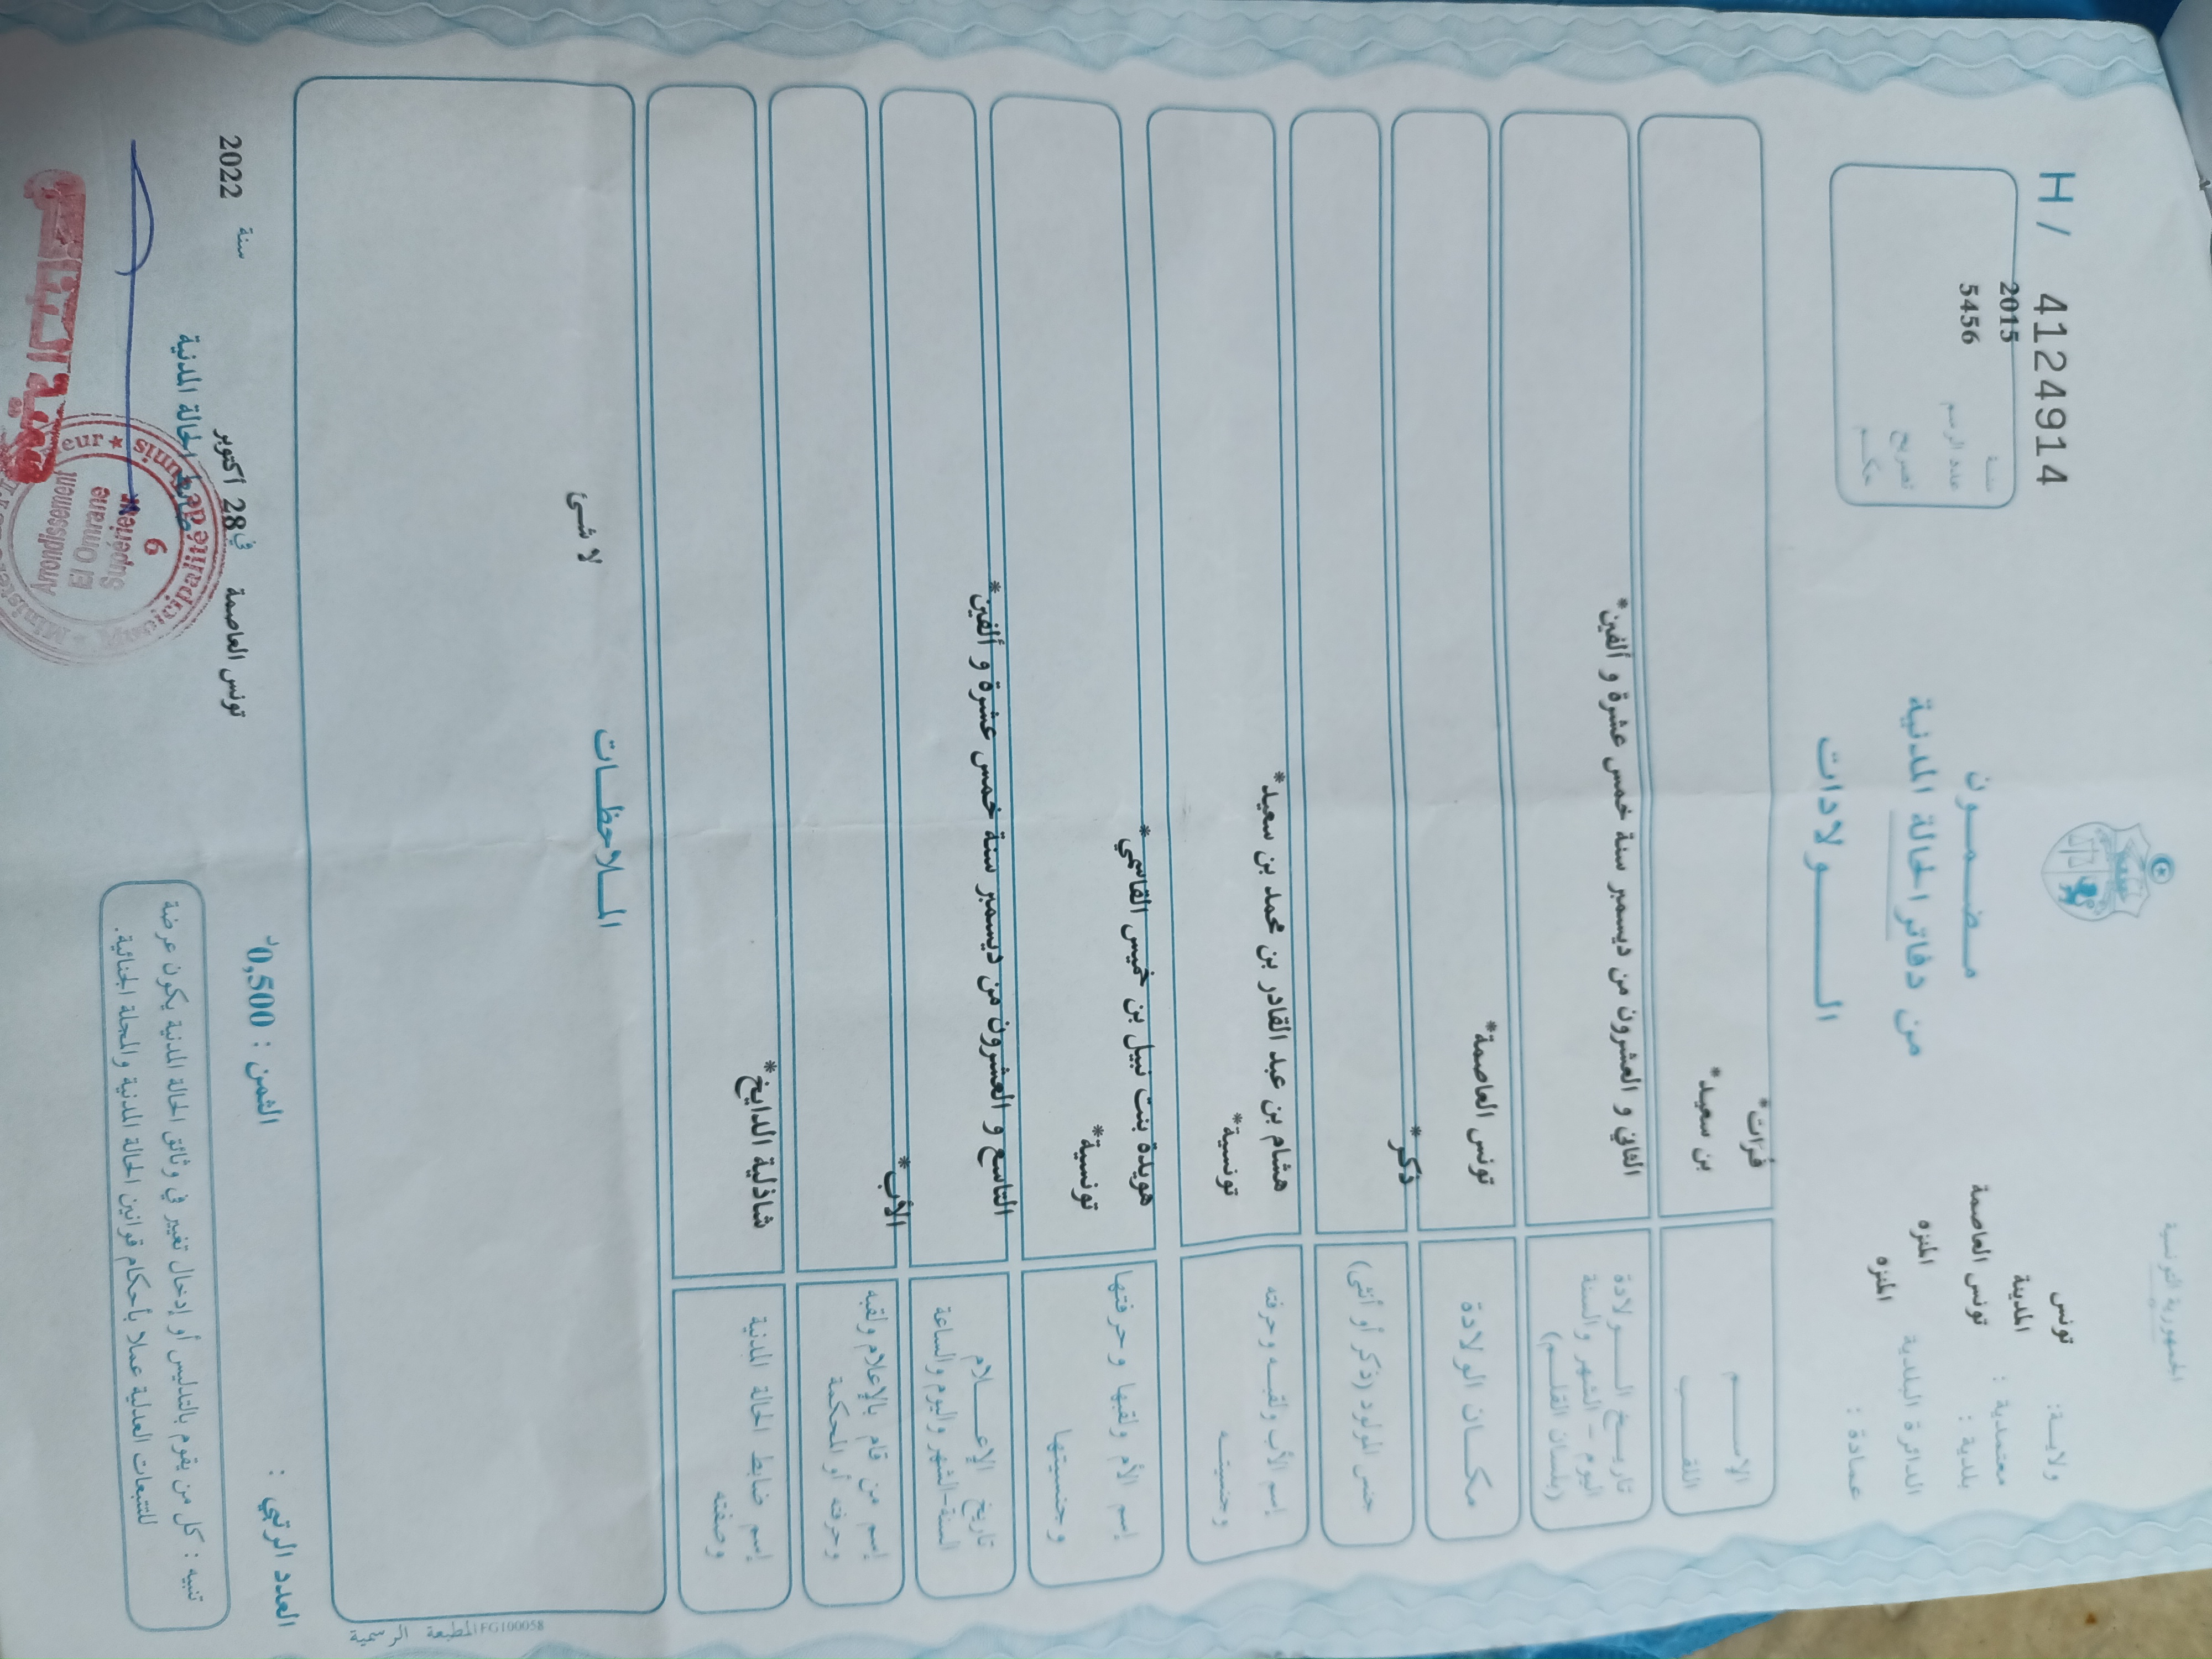 الجمهورية التونسية
H / 41249914
ولاية: تونس
معتمدية : المدينة
بلدية : تونس العاصمة
الدائرة البلدية المنزه
عمادة : المنزه
سنة 2015
عدد الرسم 5456
تصريح
حكم
مضمون
من دفاتر الحالة المدنية
الولادات
الاسم فرات*
اللقب بن سعيد*
تاريخ الولادة
اليوم - الشهر والسنة
(بلسان القلم)
الثاني و العشرون من ديسمبر سنة خمس عشرة و ألفين*
مكان الولادة تونس العاصمة*
جنس المولود (ذكر أو أنثى) ذكر*
إسم الأب ولقبه وحرفته هشام بن عبد القادر بن محمد بن سعيد*
وجنسيته تونسية*
إسم الأم ولقبها وحرفتها هويدة بنت نبيل بن خميس القاسمي*
وجنسيتها تونسية*
تاريخ الإعلام
السنة-الشهر واليوم والساعة
التاسع و العشرون من ديسمبر سنة خمس عشرة و ألفين*
إسم من قام بالإعلام ولقبه
وحرفته أو المحكمة
الأب*
إسم ضابط الحالة المدنية
وصفته
شاذلية الدايخ*
الملاحظات
لا شئ
المطبعة الرسمية FG100058
العدد الرتبي :
الثمن : 0,500د
تونس العاصمة في 28 اكتوبر سنة 2022
ضابط الحالة المدنية
تنبيه : كل من يقوم بالتدليس أو إدخال تغيير في وثائق الحالة المدنية يكون عرضة
للتتبعات العدلية عملا بأحكام قوانين الحالة المدنية والمجلة الجنائية.
Municipalité de Tunis
6
Arrondissement
El Omrane
Supérieur